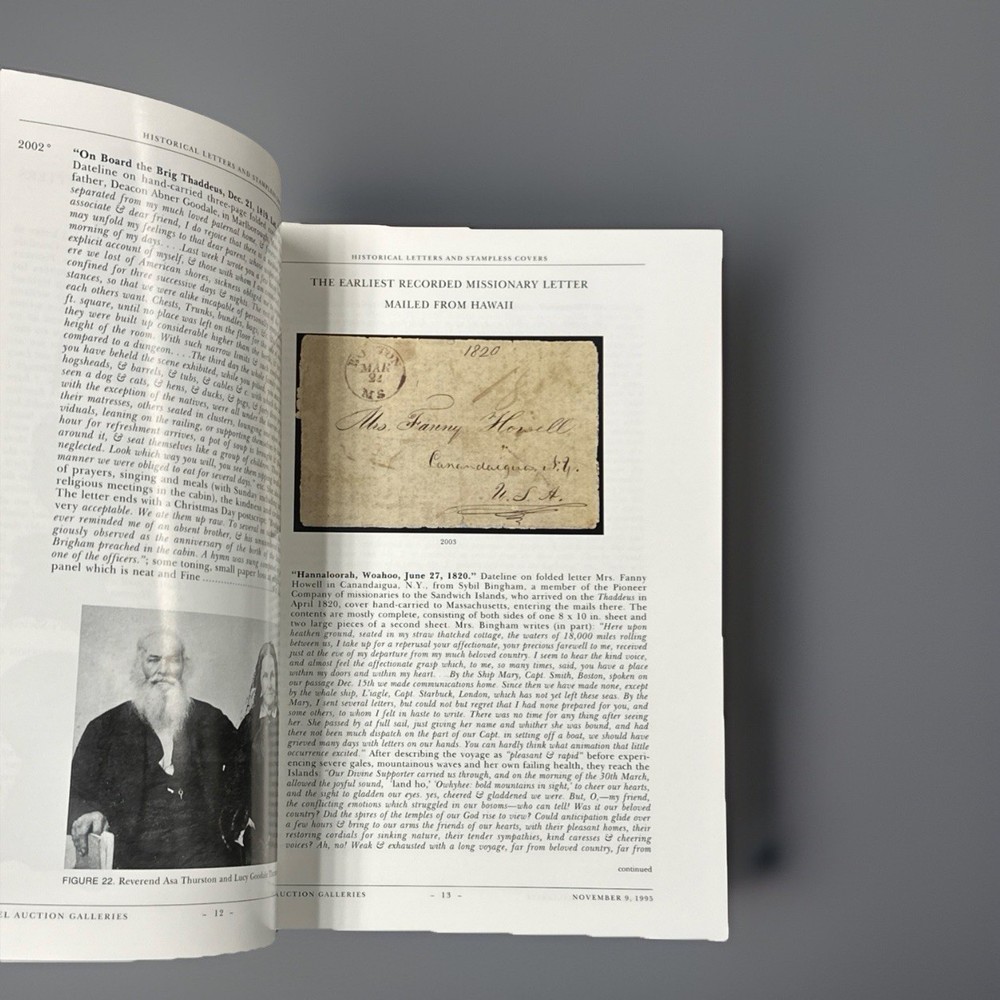 HISTORICAL LETTERS AND STAMPLESS
2002°
"On Board the Brig Thaddeus, Dec. 21, 1819.
Dateline on hand-carried three-page folded
father, Deacon Abner Goodale, in Marlborough
separated from my much loved paternal home, &
associate & dear friend, I do rejoice that
may unfold my feelings to that dear parent,
morning of my days. . . .Last week I wrote you a
explicit account of myself, & those with whom I am
ere we lost of American shores, sickness obliged
confined for three successive days & nights. The
stances, so that we were alike incapable of
each others want. Chests, Trunks, bundles, bags,
ft. square, until no place was left on the floor for
they were built up considerable higher than the
height of the room. With such narrow limits
compared to a dungeon. . . .The third day the
you have beheld the scene exhibited, while you
hogsheads, & barrels, & tubs, & cables &
seen a dog & cats, & hens, & ducks, & pigs, &
with the exception of the natives, were all under
their mattresses, others seated in clusters,
viduals, leaning on the railing, or supporting
hour for refreshment arrives, a pot of soup is
around it, & seat themselves like a group of children
neglected. Look which way you will, you see them
manner we were obliged to eat for several days,"
of prayers, singing and meals (with Sunday
religious meetings in the cabin), the kindness
The letter ends with a Christmas Day postscript
very acceptable. We ate them up raw. To several
ever reminded me of an absent brother, & his
giously observed as the anniversary of the birth of
Brigham preached in the cabin. A hymn was sung
one of the officers."; some toning, small paper
panel which is neat and Fine
FIGURE 22. Reverend Asa Thurston and Lucy Goodale
EL AUCTION GALLERIES
– 12 –
HISTORICAL LETTERS AND STAMPLESS COVERS
THE EARLIEST RECORDED MISSIONARY LETTER
MAILED FROM HAWAII
1820
BOSTON
MAR
21
MS
Mrs. Fanny Howell
Canandaigua N.Y.
U.S.A.
2003
"Hannaloorah, Woahoo, June 27, 1820." Dateline on folded letter Mrs. Fanny
Howell in Canandaigua, N.Y., from Sybil Bingham, a member of the Pioneer
Company of missionaries to the Sandwich Islands, who arrived on the Thaddeus in
April 1820, cover hand-carried to Massachusetts, entering the mails there. The
contents are mostly complete, consisting of both sides of one 8 x 10 in. sheet and
two large pieces of a second sheet. Mrs. Bingham writes (in part): "Here upon
heathen ground, seated in my straw thatched cottage, the waters of 18,000 miles rolling
between us, I take up for a reperusal your affectionate, your precious farewell to me, received
just at the eve of my departure from my much beloved country. I seem to hear the kind voice,
and almost feel the affectionate grasp which, to me, so many times, said, you have a place
within my doors and within my heart. . .By the Ship Mary, Capt. Smith, Boston, spoken on
our passage Dec. 15th we made communications home. Since then we have made none, except
by the whale ship, L'iagle, Capt. Starbuck, London, which has not yet left these seas. By the
Mary, I sent several letters, but could not but regret that I had none prepared for you, and
some others, to whom I felt in haste to write. There was no time for any thing after seeing
her. She passed by at full sail, just giving her name and whither she was bound, and had
there not been much dispatch on the part of our Capt. in setting off a boat, we should have
grieved many days with letters on our hands. You can hardly think what animation that little
occurrence excited." After describing the voyage as "pleasant & rapid" before experi-
encing severe gales, mountainous waves and her own failing health, they reach the
Islands. "Our Divine Supporter carried us through, and on the morning of the 30th March,
allowed the joyful sound, 'land ho,' 'Owhyhee: bold mountains in sight,' to cheer our hearts,
and the sight to gladden our eyes. yes, cheered & gladdened we were. But, O,—my friend,
the conflicting emotions which struggled in our bosoms—who can tell! Was it our beloved
country? Did the spires of the temples of our God rise to view? Could anticipation glide over
a few hours & bring to our arms the friends of our hearts, with their pleasant homes, their
restoring cordials for sinking nature, their tender sympathies, kind caresses & cheering
voices? Ah, no! Weak & exhausted with a long voyage, far from beloved country, far from
continued
AUCTION GALLERIES
– 13 –
NOVEMBER 9, 1995